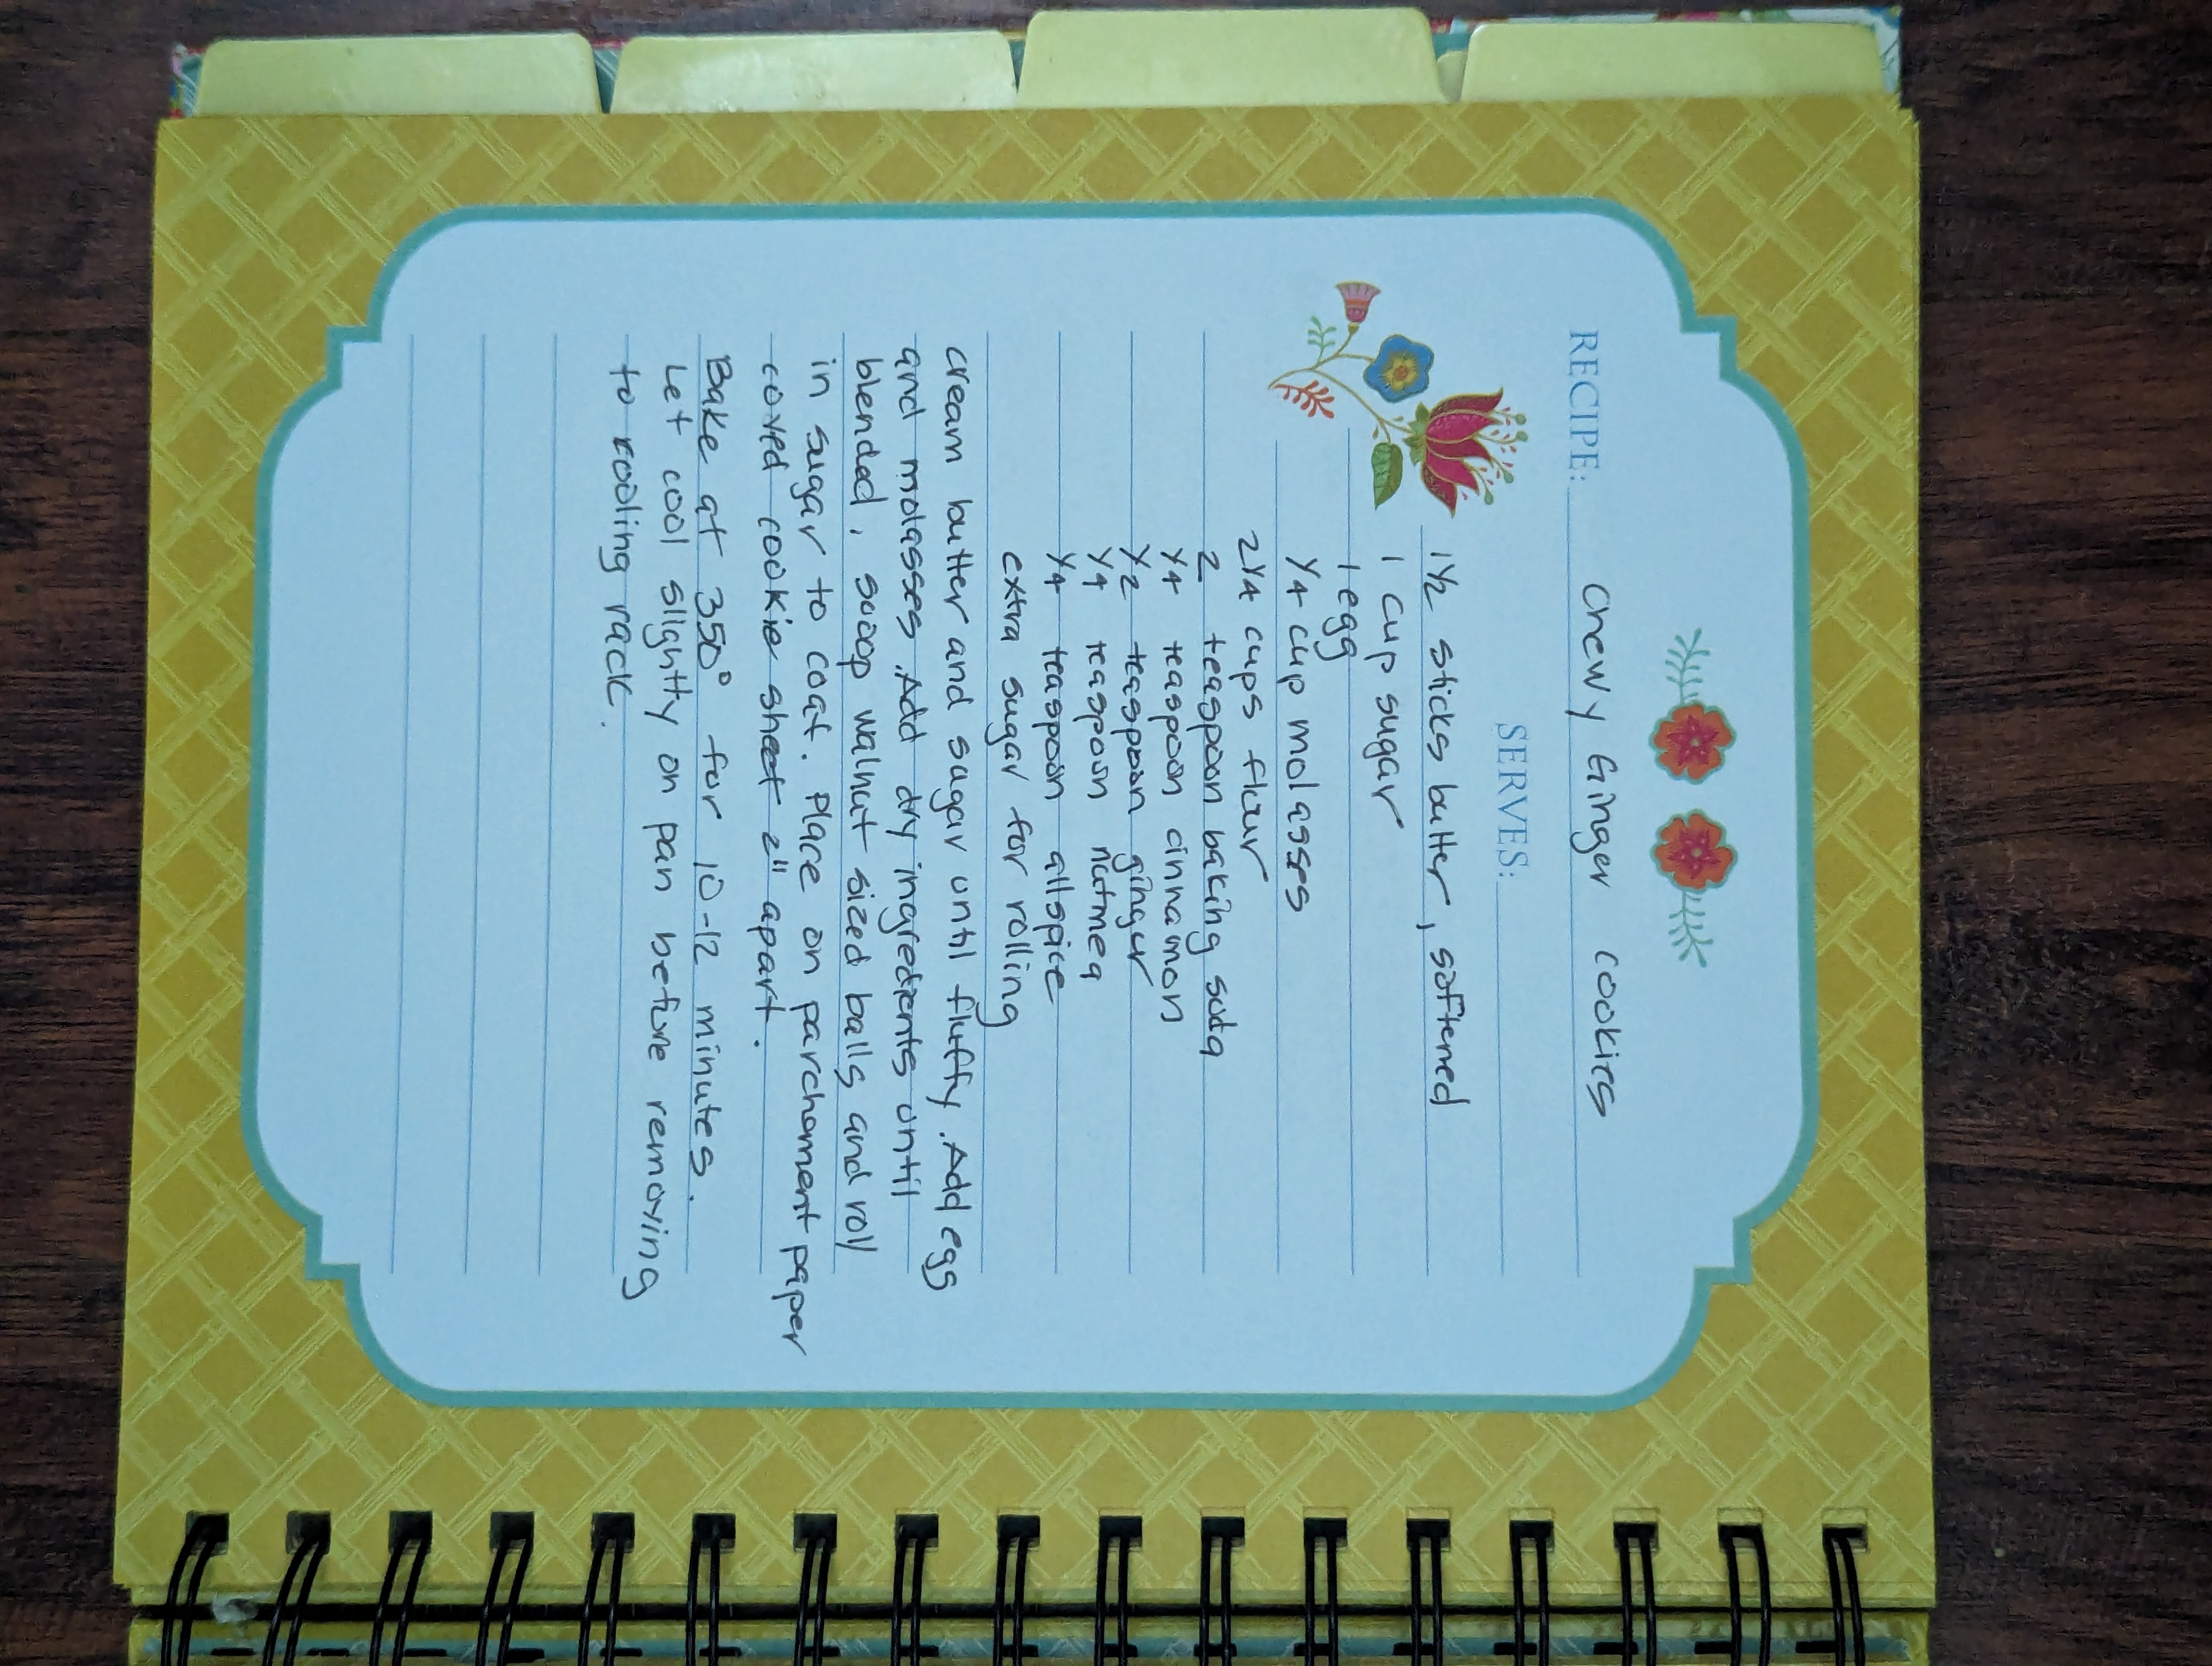 RECIPE: Chewy Ginger Cookies
SERVES:
1 1/2 sticks butter, softened
1 cup sugar
1 egg
1/4 cup molasses
2 1/4 cups flour
2 teaspoon baking soda
1/4 teaspoon cinnamon
1/2 teaspoon ginger
1/4 teaspoon nutmeg
1/4 teaspoon allspice
extra sugar for rolling
cream butter and sugar until fluffy. Add egg
and molasses. Add dry ingredients until
blended. scoop walnut sized balls and roll
in sugar to coat. Place on parchament paper
coved cookie sheet 2" apart.
Bake at 350° for 10-12 minutes.
Let cool slightly on pan before removing
to cooling rack.